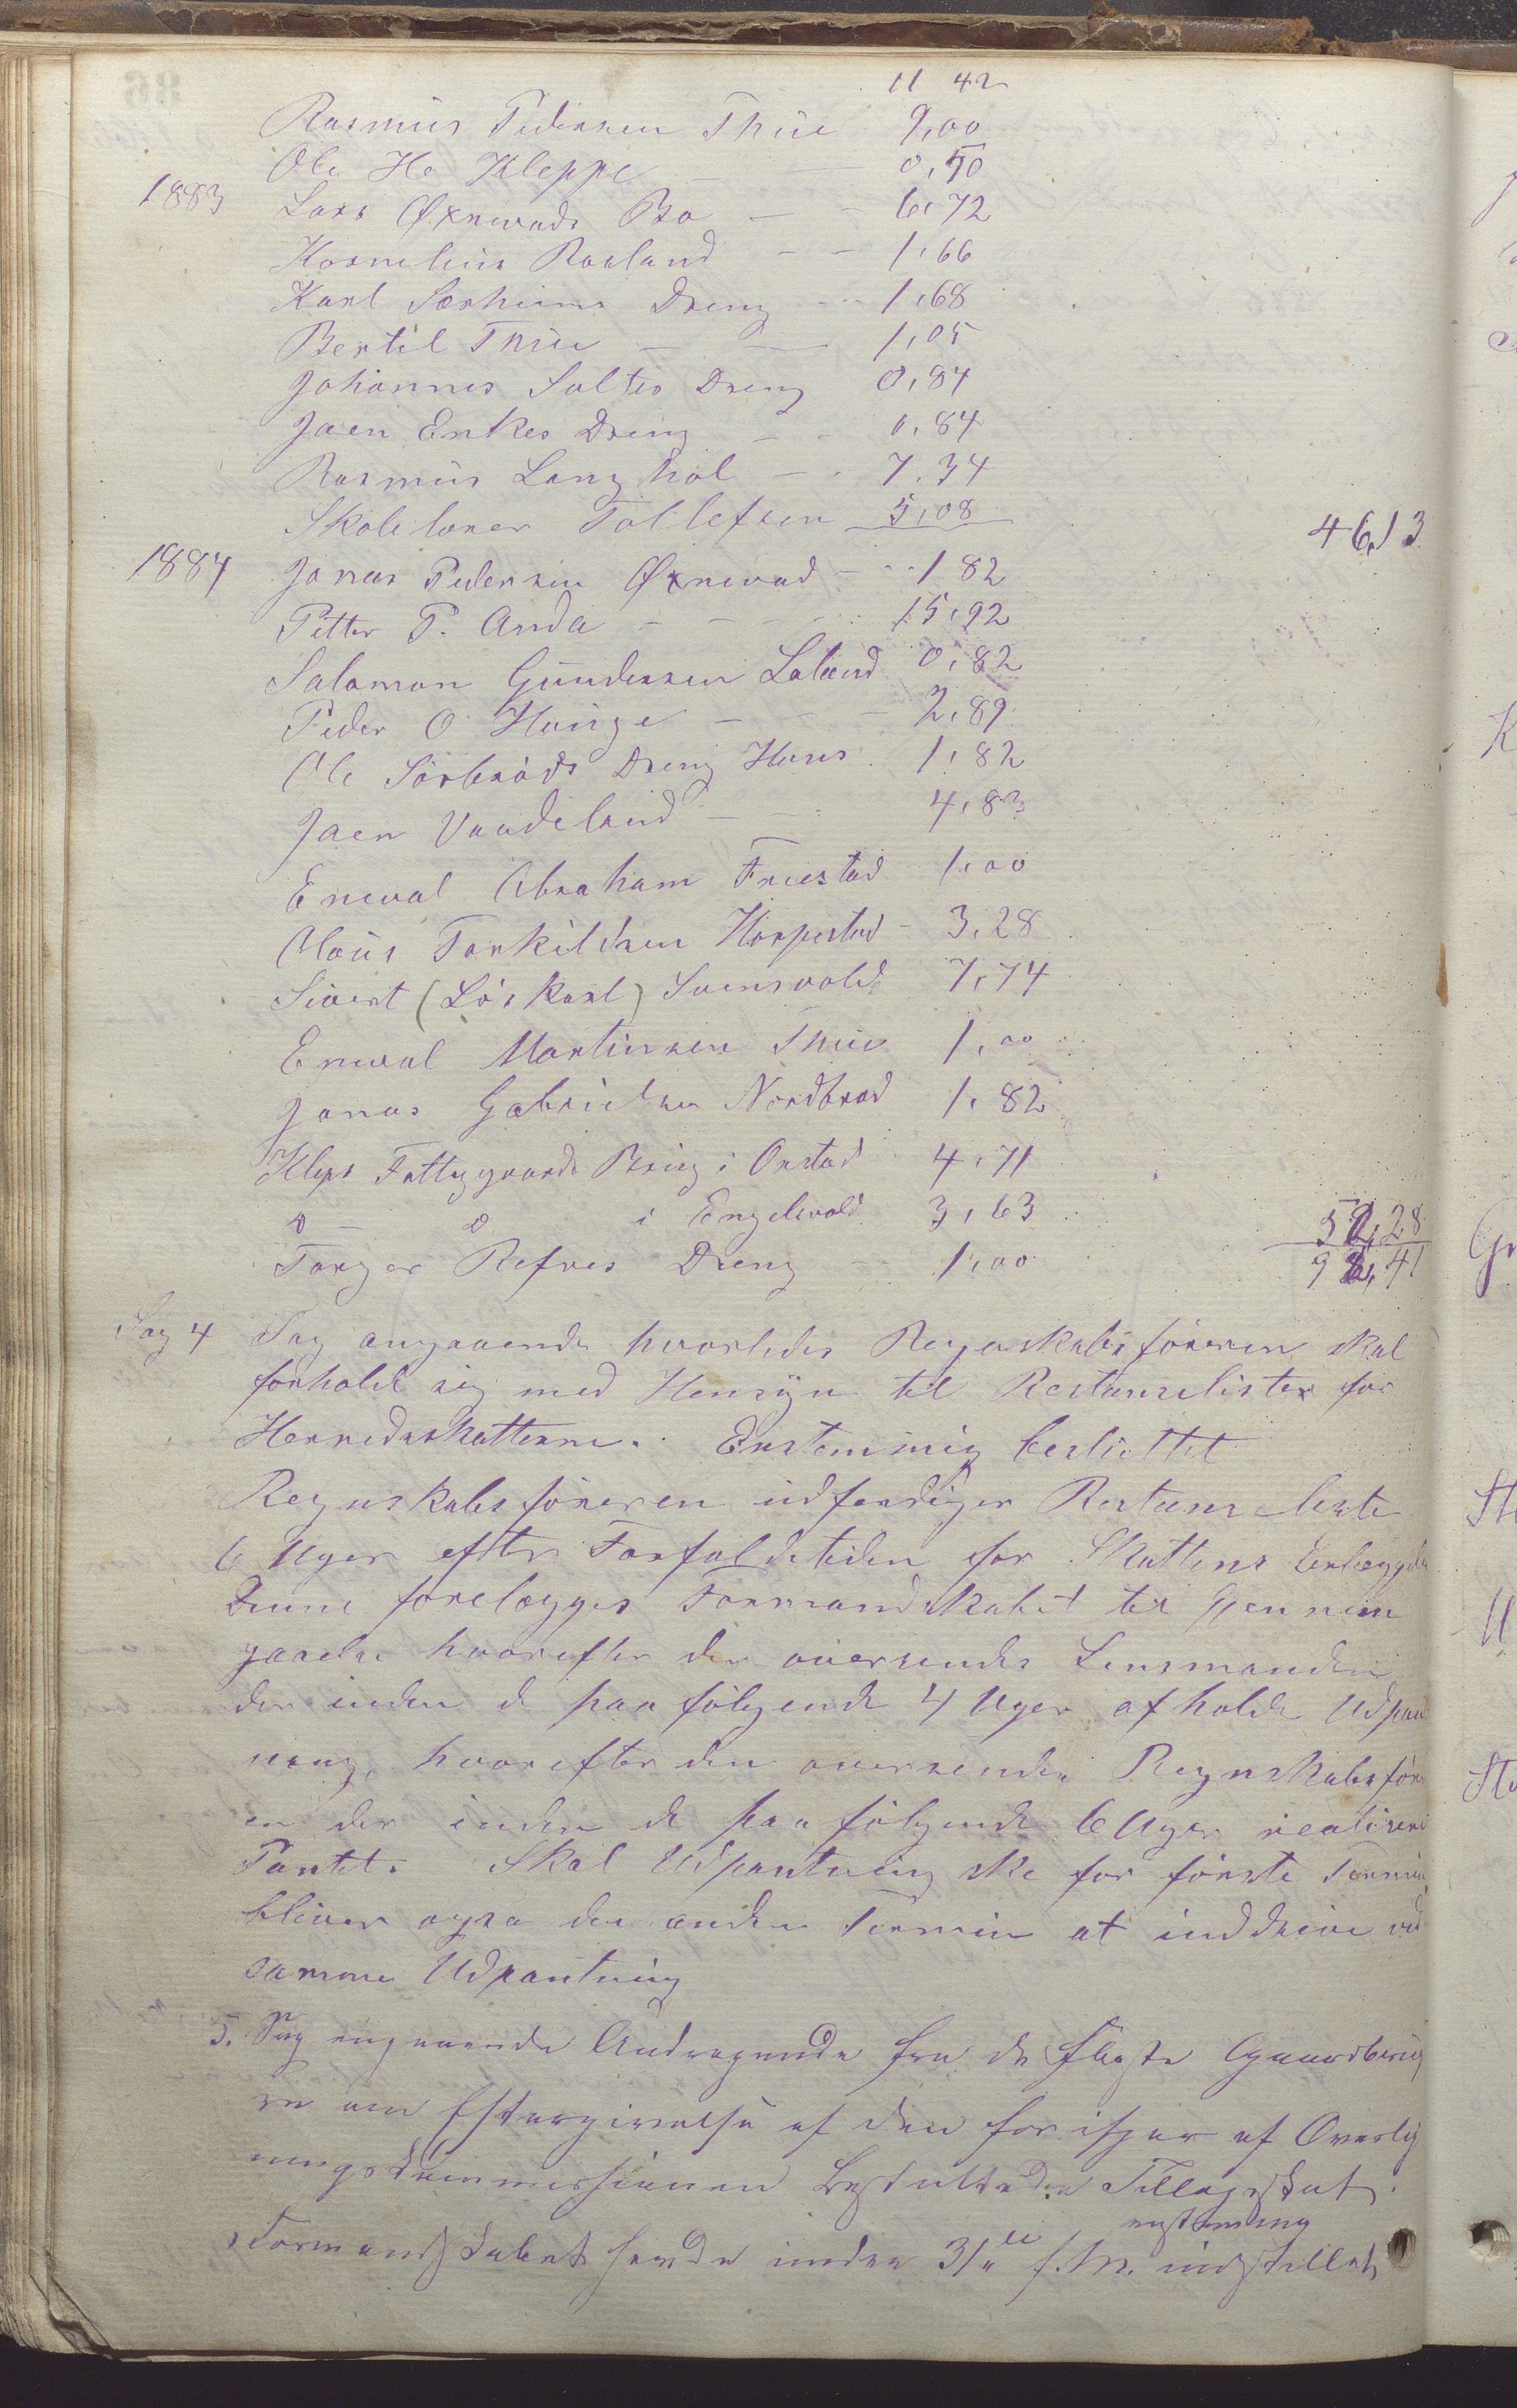 11 42
Rasmus Pedersen Thue 9,00
Ole Hs Kleppe - - 0,50
1883 Lars Øxnevads Bo - - 6,72
Kornelius Roaland - - 1,66
Karl Sørheims Dreng - - 1,68
Bertil Thue - - 1,05
Johannes Saltes Dreng 0,84
Jaen Enkes Dreng - - 0,84
Rasmus Langhol - - 7,34
Skolelærer Tollefsen 5,08 46,13
1884 Jonas Pedersen Øxnevad - - 1 82
Petter P. Anda - - - 15,92
Salamon Gundersen Laland 0,82
Peder O Hauge - - - 2,89
Ole Sørbrøds Dreng Hans 1,82
Jaen Vaadeland - - 4,83
Eneval Abraham Friestad 1,00
Claus Torkildsen Horpestad - 3,28
Sivert (Løskarl) Svensvold 7,74
Eneval Martinsen Thue 1,00
Jonas Gabrielsen Nordbrød 1,82
Kleps Fattiggaards Brug i Orstad 4,71
D - D i Engelsvold 3,63 52,28
Torger Refnes Dreng - 1,00 98,41
Sag 4 Sag angaaende hvorledes Regnskabsføreren skal
forholde sig med Hensyn til Restanselister for
Herredsskatterne. Enstemmig besluttet
Regnskabsføreren udferdiger Restanseliste
6 Uger efter Forfaldstiden for Skattens Erlægge
Denne forelægges Formandskabet til Gennem
gaaelse hvorefter den oversendes Lensmanden
der inden de paafølgende 4 Uger afholde Udpan
ning, hvorefter den oversendes Regnskabsfør
en der inden de paafølgende 6 Uger realisere
Pantet. Skal Udpantning ske for første Termin
bliver ogsa den anden Termin at inddrive ved
samme Udpantning
5. Sag angaaende Andragende fra de fleste Gaardbrug
re om Eftergivelse af den for ifjor af Overlig
ningskommissionen besluttede Tillægsskat.
enstemmig
Formandskabet havde under 31te f. M. indstillet